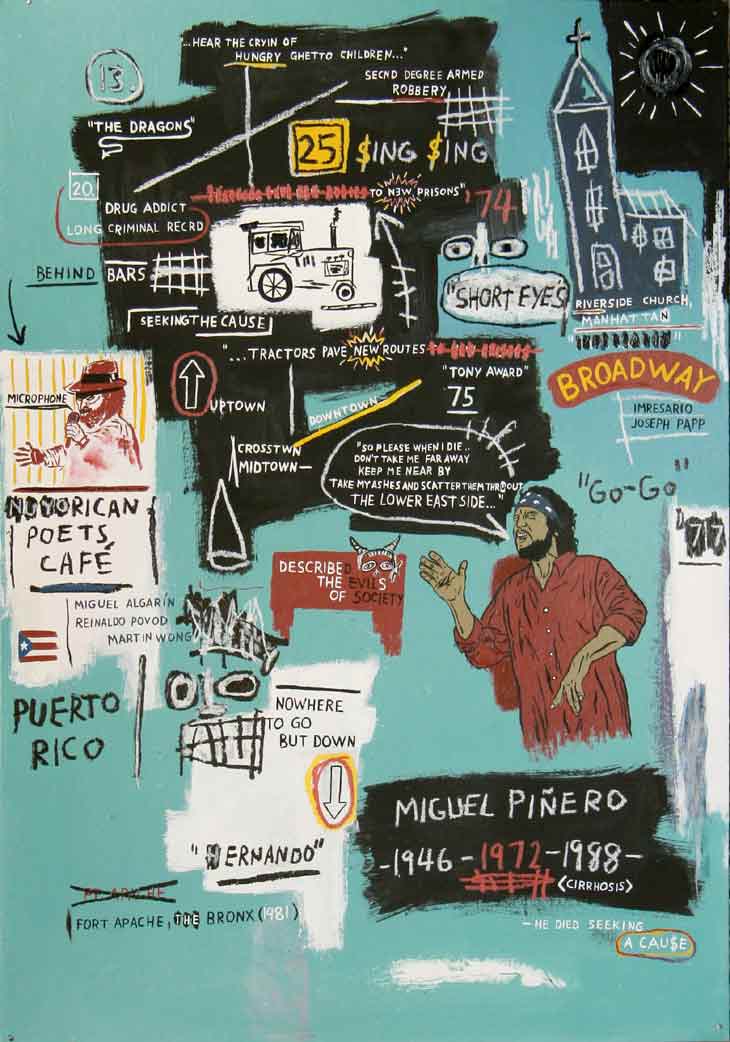 "...HEAR THE CRYIN OF
HUNGRY GHETTO CHILDREN..."
13.
SECND DEGREE ARMED
ROBBERY
"THE DRAGONS"
25 $ING $ING
TO N3W PRISONS"
'74
20.
DRUG ADDICT
LONG CRIMINAL RECRD
BEHIND BARS
"SHORT EYES
RIVERSIDE CHURCH,
MANHATTAN
SEEKING THE CAUSE
"...TRACTORS PAVE NEW ROUTES
"TONY AWARD"
75
BROADWAY
IMRESARIO
JOSEPH PAPP
UPTOWN
DOWNTOWN
CROSSTWN
MIDTOWN—
MICROPHONE
"SO PLEASE WHEN I DIE..
DON'T TAKE ME FAR AWAY
KEEP ME NEAR BY
TAKE MY ASHES AND SCATTER THEM THROUOUT
THE LOWER EAST SIDE..."
"GO-GO"
'77
NUYORICAN
POETS,
CAFÉ
DESCRIBED
THE EVILS
OF SOCIETY
MIGUEL ALGARÍN
REINALDO POVOD
MARTIN WONG
PUERTO
RICO
NOWHERE
TO GO
BUT DOWN
MIGUEL PIÑERO
-1946-1972-1988-
<CIRRHOSIS>
"HERNANDO"
FT. APACHE
FORT APACHE, THE BRONX (1981)
—HE DIED SEEKING
A CAU$E